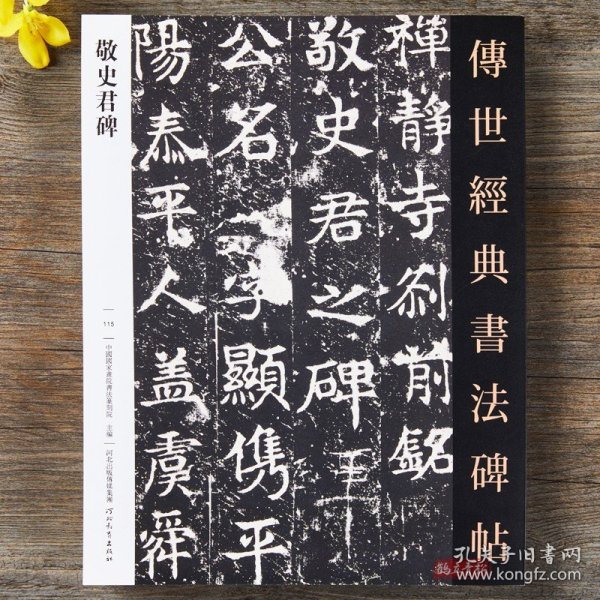 傳世經典書法碑帖
禪靜寺刹前銘
敬史君之碑
公名 字顯儁平
陽泰平人蓋虞舜
敬史君碑
115
中國國家畫院書法篆刻院 主編
河北出版傳媒集團
河北教育出版社
孔夫子旧书网
www.kongfz.com